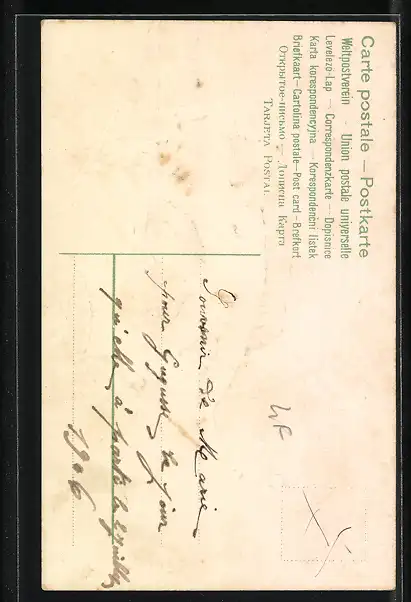 Carte postale — Postkarte
Weltpostverein - Union postale universelle
Levelező-Lap — Correspondenzkarte — Dopisnice
Karta korespondencyjna — Korespondenční lístek
Briefkaart—Cartolina postale—Post card—Brefkort
Открытое письмо — Дописна Карта
TARJETA POSTAL
Souvenir de Marie
pour Gugusse le jour
qu'elle a porté
1906